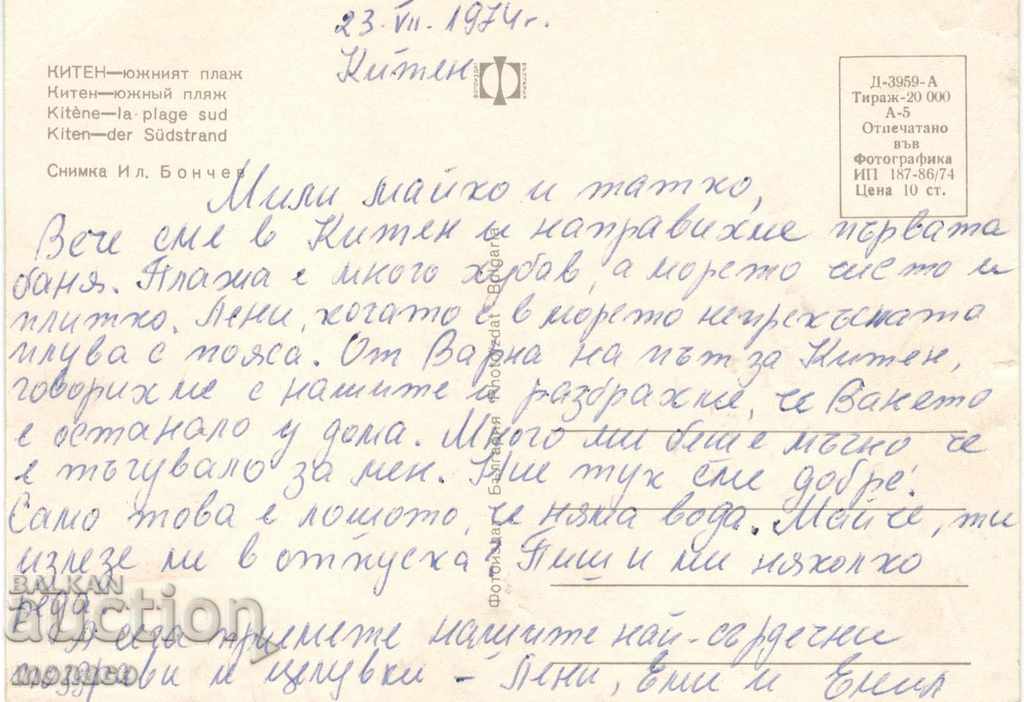 23. VII. 1974г.
Китен
КИТЕН—южният плаж
Китен—южный пляж
Kitène—la plage sud
Kiten—der Südstrand
Снимка Ил. Бончев
Д-3959-А
Тираж-20 000
А-5
Отпечатано
във
Фотографика
ИП 187-86/74
Цена 10 ст.
Мили майко и татко,
Вече сме в Китен и направихме първата
баня. Плажа е много хубав, а морето чисто и
плитко. Лени, когато е в морето непрекъсната
плува с пояса. От Варна на път за Китен,
говорихме с нашите и разбрахме, че Ването
е останало у дома. Много ми беше мъчно че
е тъгувало за мен. Ние тук сме добре.
Само това е лошото, че няма вода. Майче, ти
излезе ли в отпуска? Пиши ми няколко
реда.
А сега приемете нашите най-сърдечни
поздрави и целувки - Лени, Еми и Емил
Фотоиздат - България Photoizdat - Bolgaria
BALKAN
auction